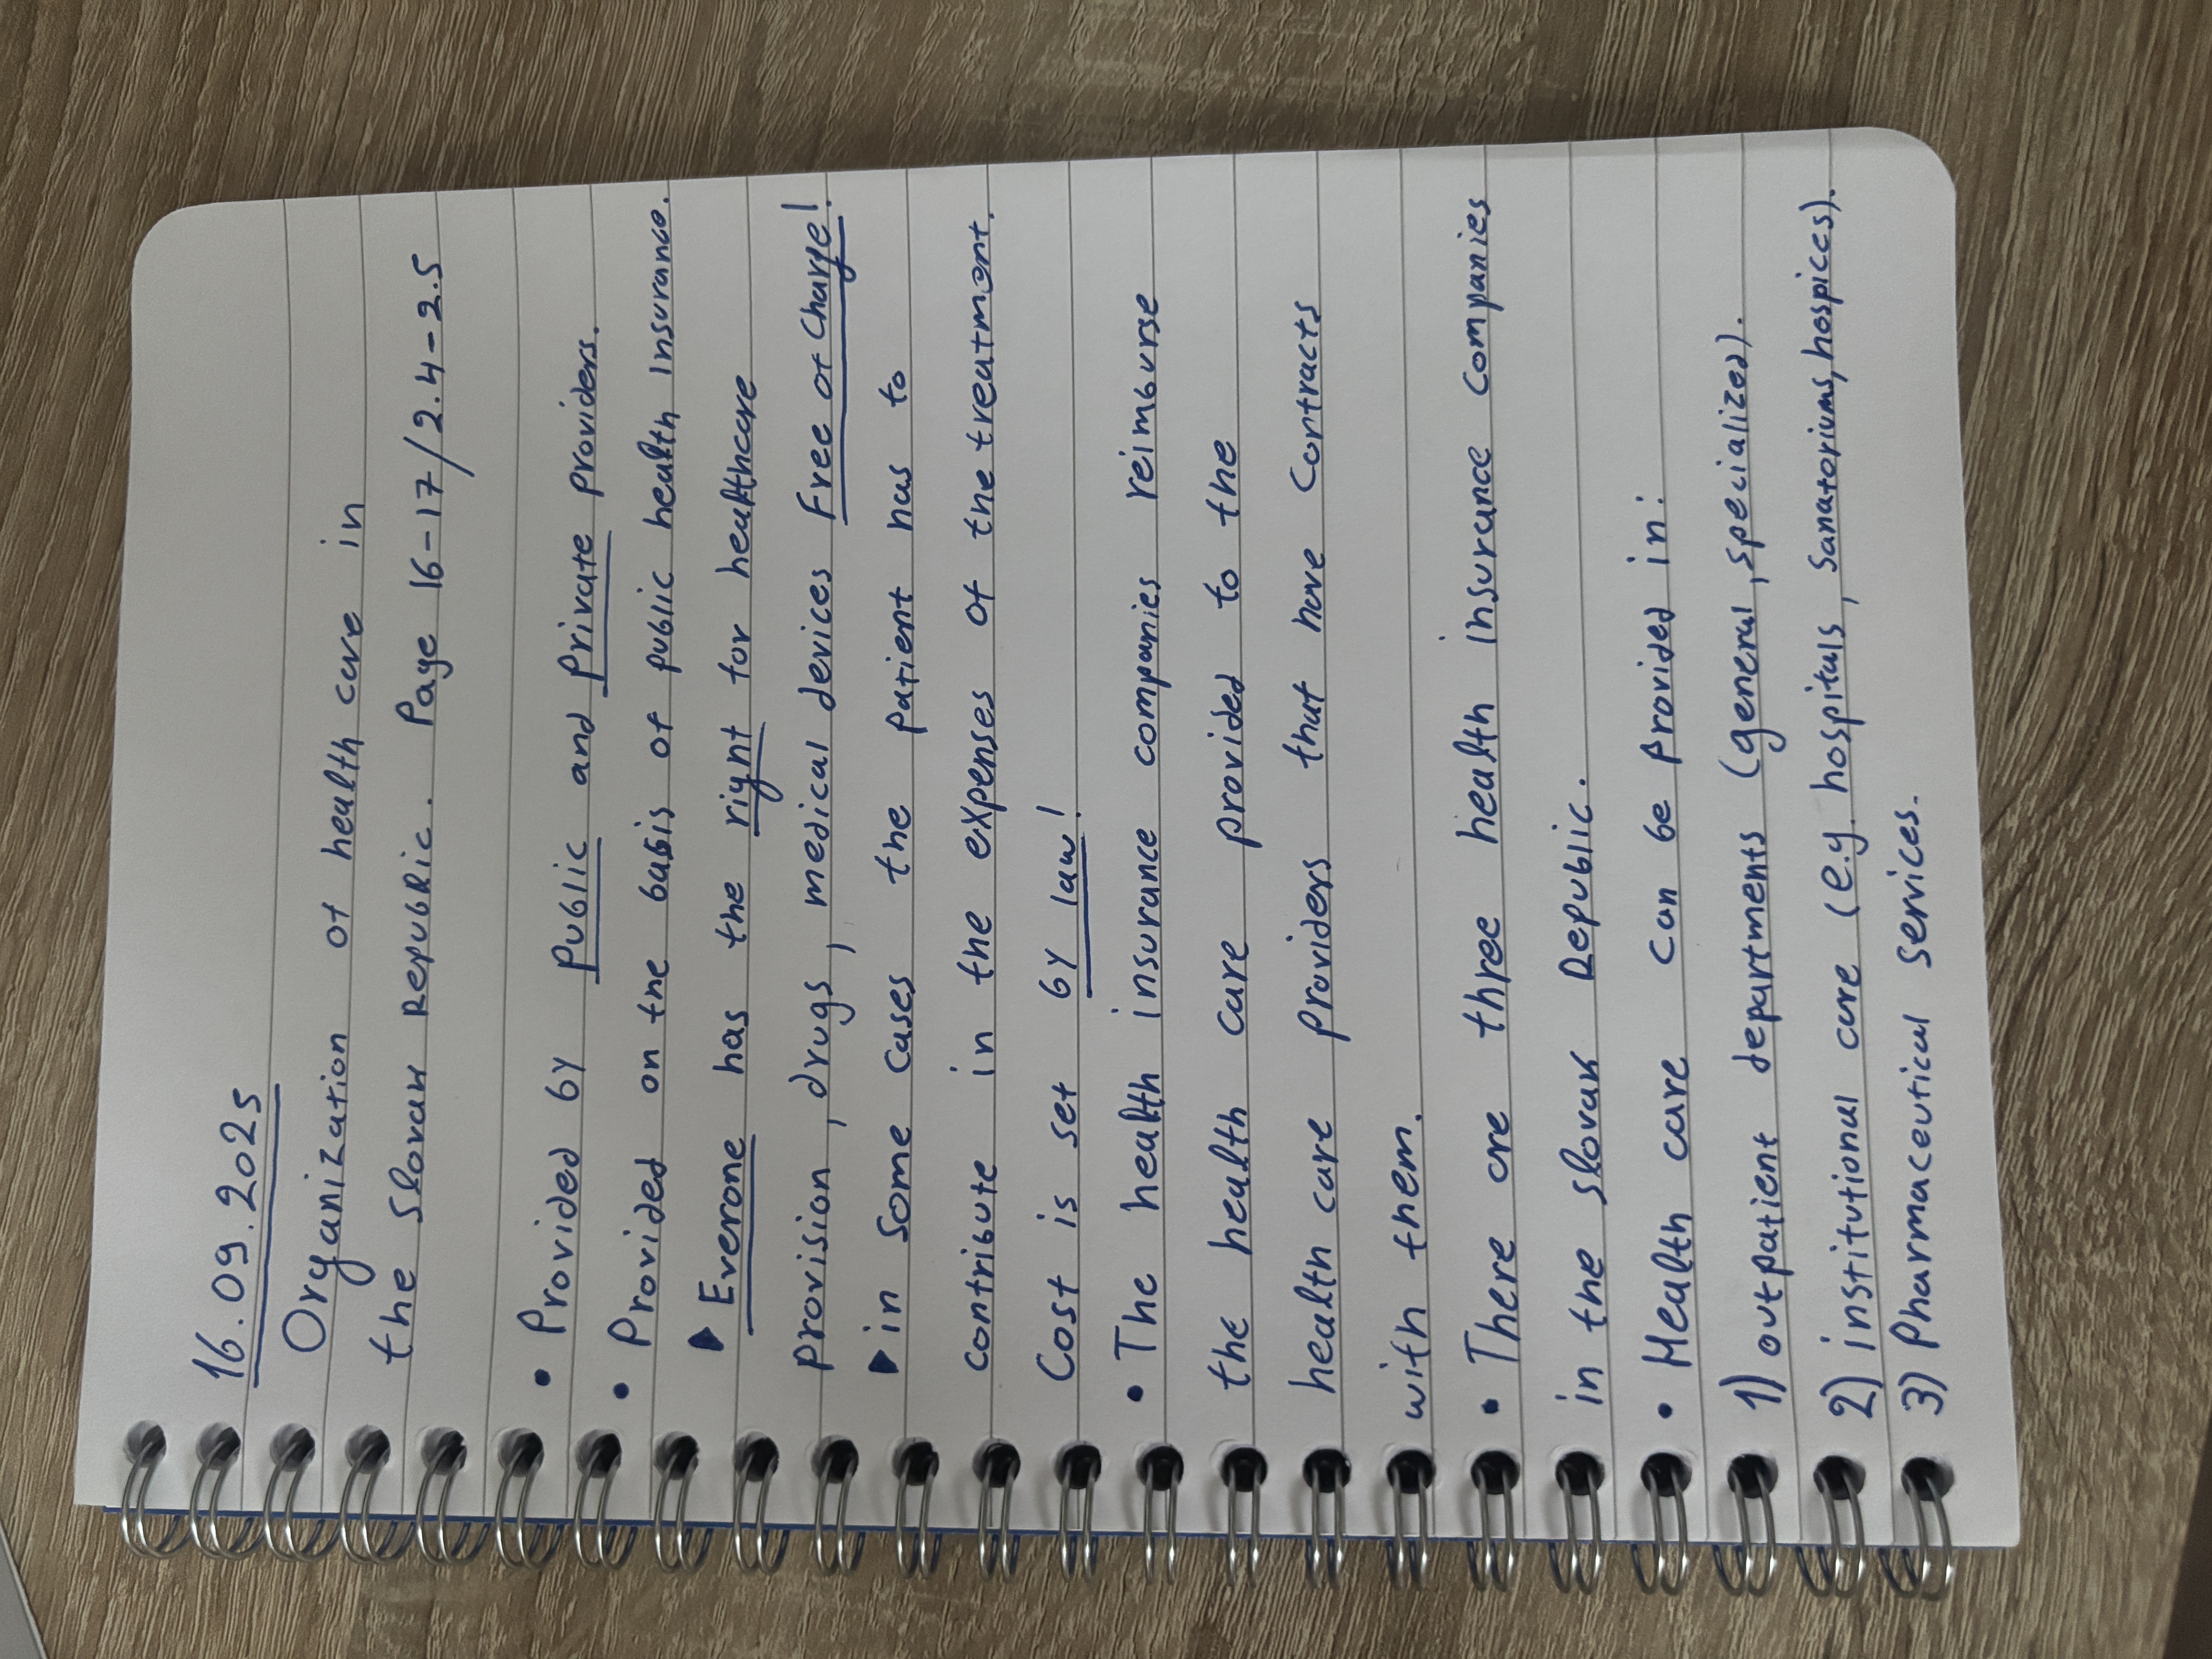 16.09.2025
Organization of health care in
the Slovak Republic. Page 16-17/2.4-2.5
• Provided by public and private providers.
• Provided on the basis of public health insurance.
▶ Everone has the right for healthcare
provision, drugs, medical devices Free of Charge!
▶ in some cases the patient has to
contribute in the expenses of the treatment.
Cost is set by law!
• The health insurance companies reimburse
the health care provided to the
health care providers that have contracts
with them.
• There are three health insurance companies
in the Slovak Republic.
• Health care can be provided in:
1) outpatient departments (general, specialized).
2) institutional care (e.g. hospitals, sanatoriums, hospices).
3) Pharmaceutical services.